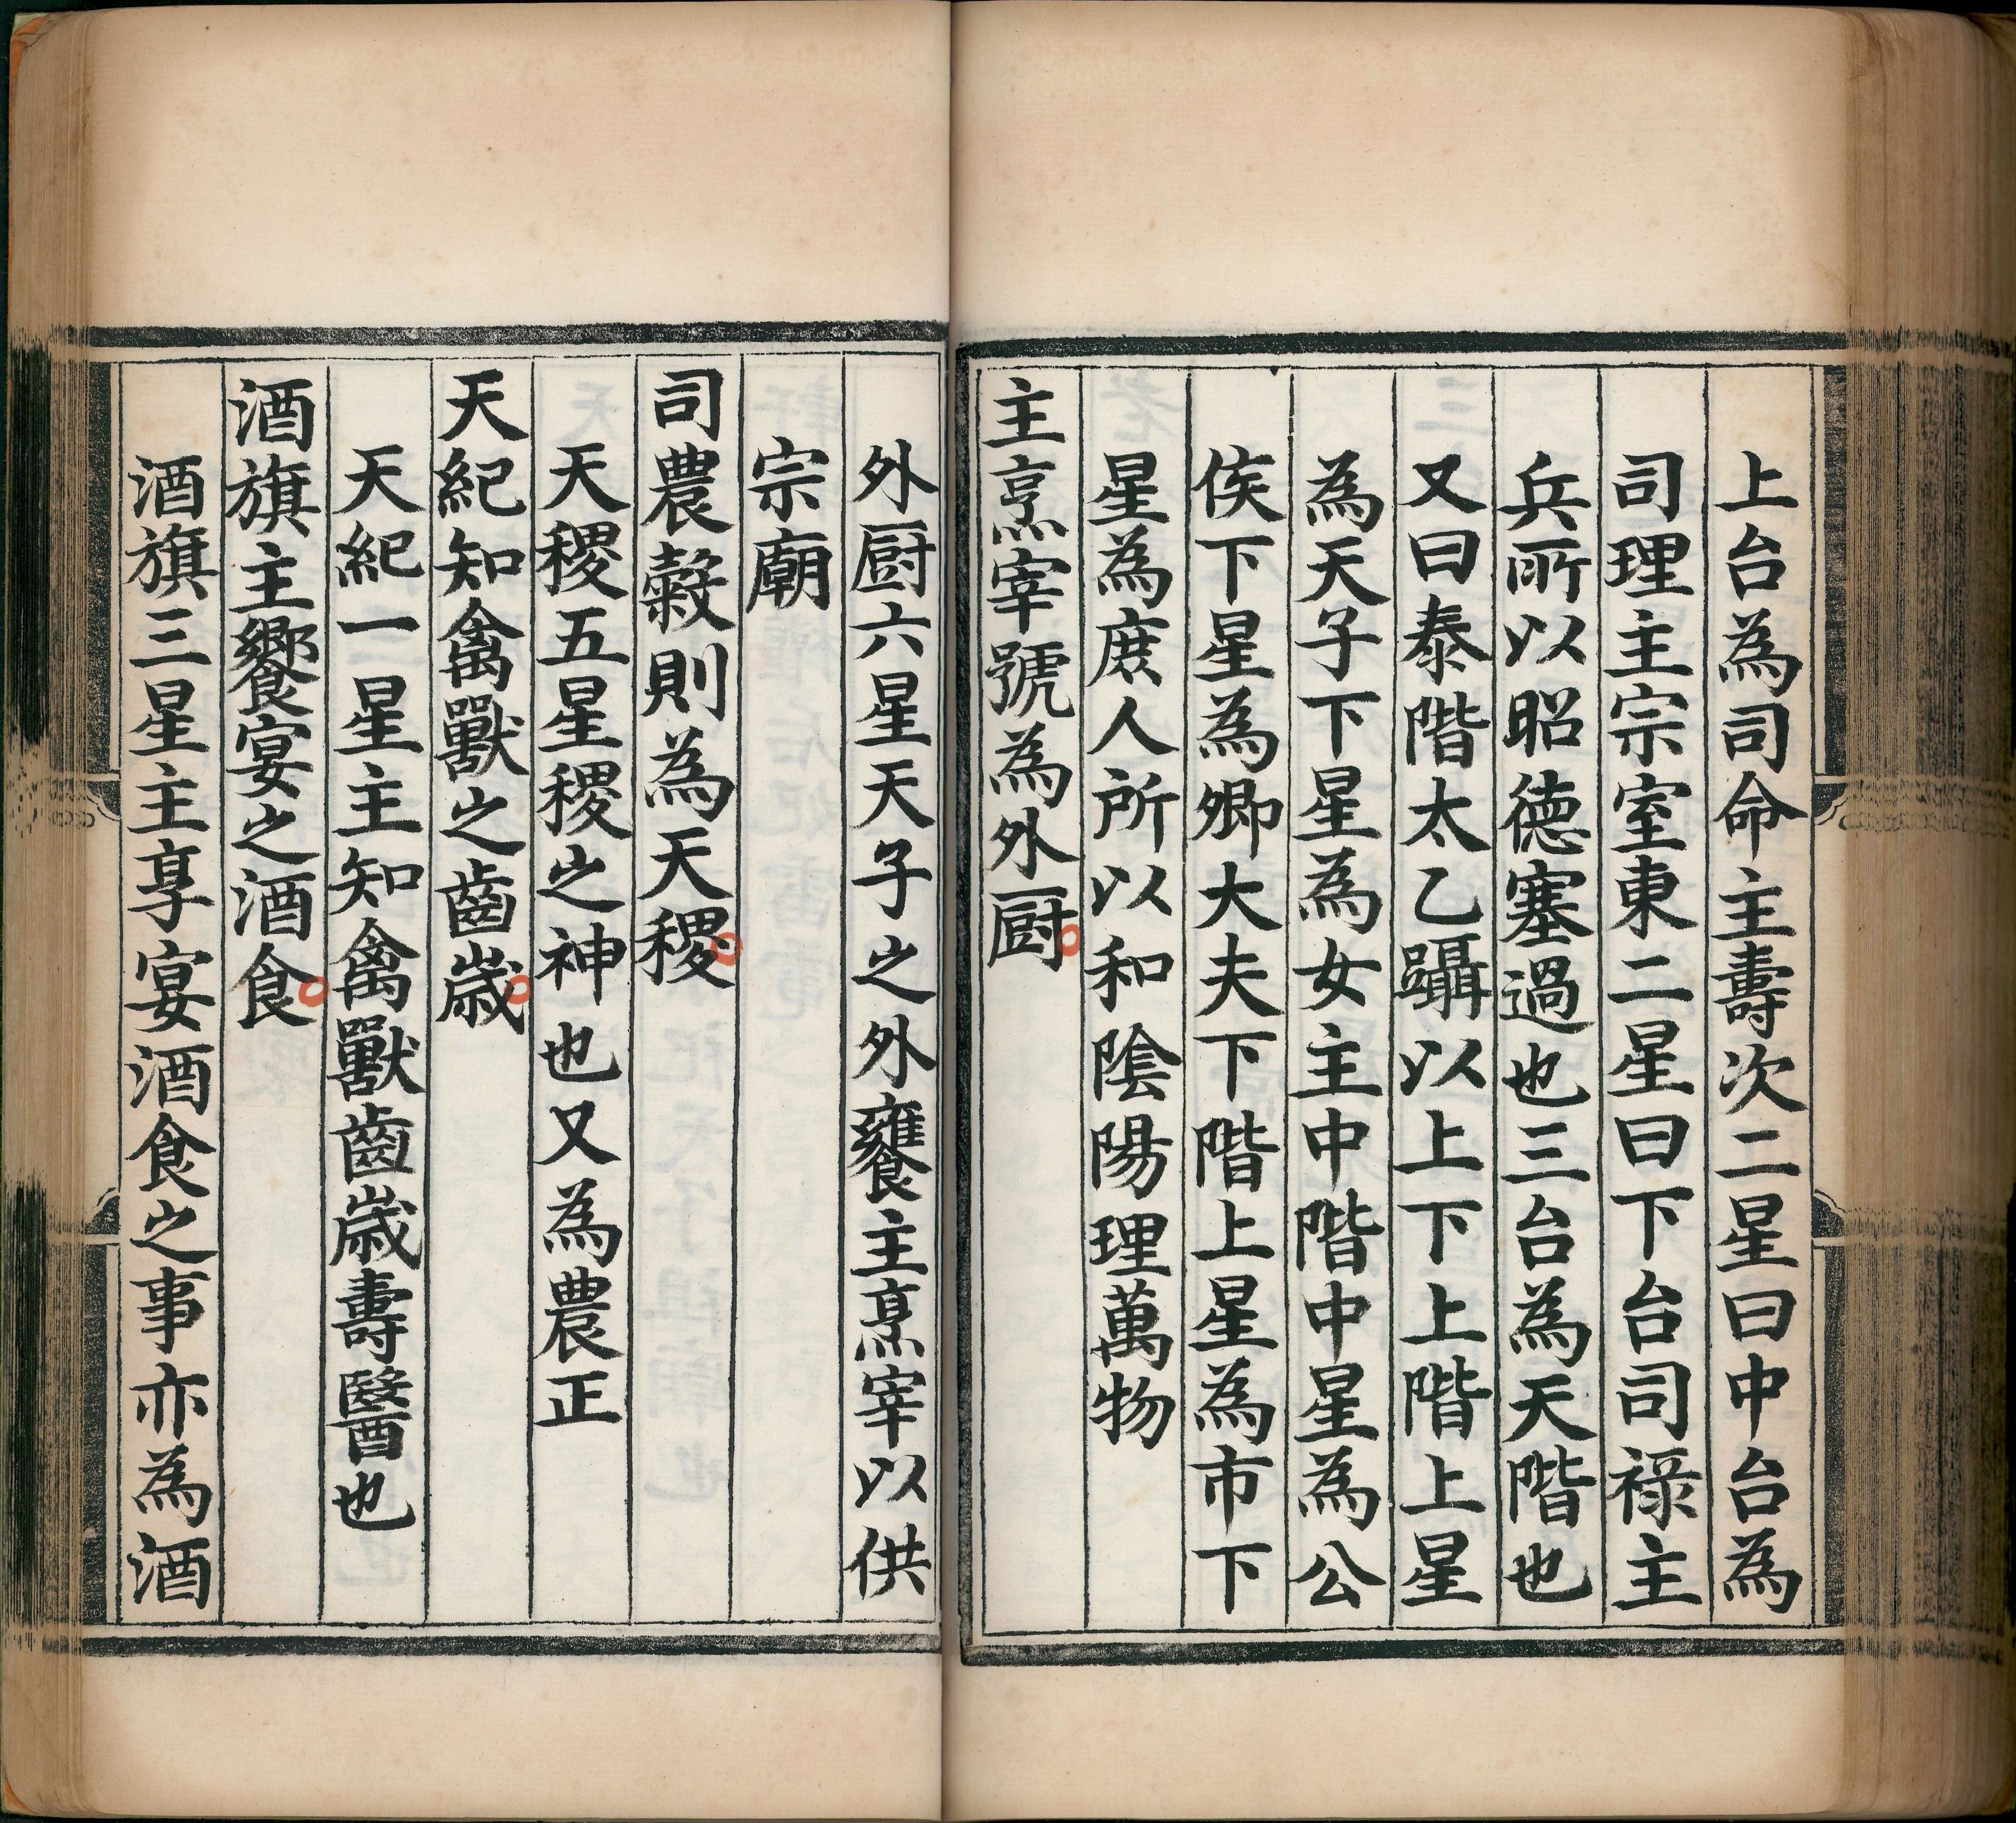 上台為司命主壽次二星曰中台為
司理主宗室東二星曰下台司祿主
兵所以昭德塞過也三台為天階也
又曰泰階太乙躡以上下上階上星
為天子下星為女主中階中星為公
侯下星為卿大夫下階上星為市下
星為庻人所以和陰陽理萬物
主烹宰號為外厨
外厨六星天子之外饔主烹宰以供
宗廟
司農穀則為天稷
天稷五星稷之神也又為農正
天紀知禽獸之齒歳
天紀一星主知禽獸齒歳壽醫也
酒旗主饗宴之酒食
酒旗三星主享宴酒食之事亦為酒